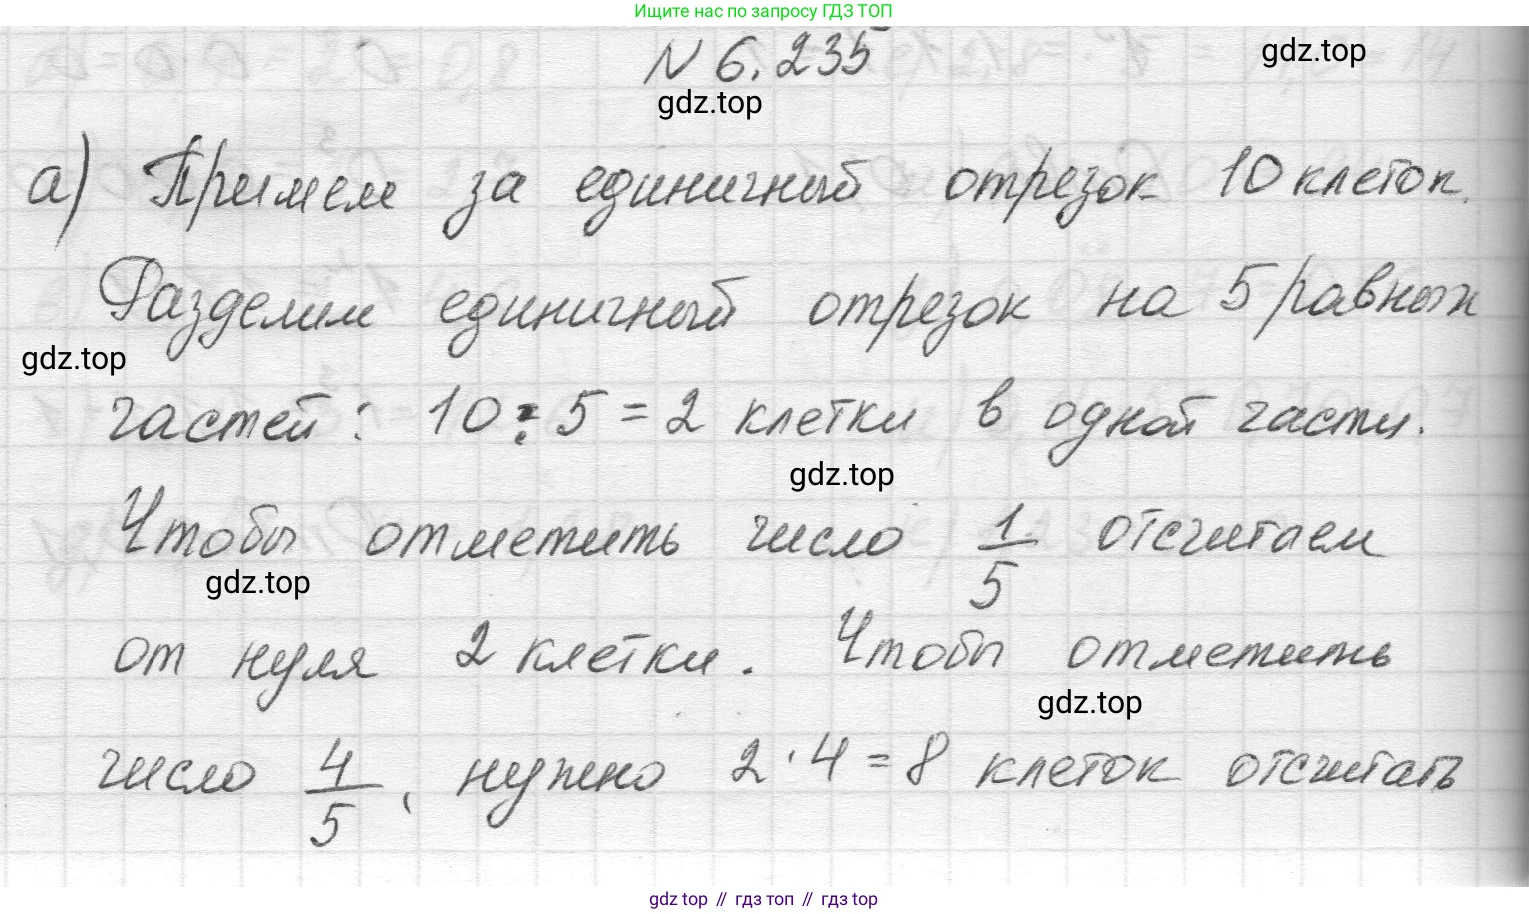 Ищите нас по запросу ГДЗ ТОП
N 6.235
gdz.top
gdz.top
а) Примем за единичный отрезок 10 клеток.
Разделим единичный отрезок на 5 равных
gdz.top
частей: 10 : 5 = 2 клетки в одной части.
gdz.top
Чтобы отметить число 1/5 отсчитаем
gdz.top
от нуля 2 клетки. Чтобы отметить
gdz.top
число 4/5, нужно 2 · 4 = 8 клеток отсчитать
gdz top // гдз топ // гдз top